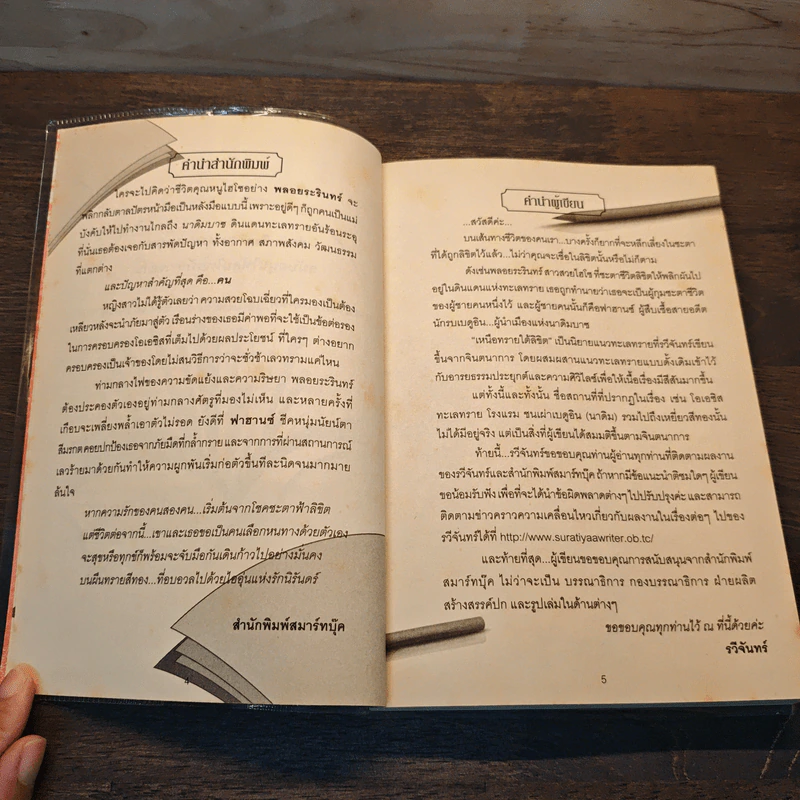 คำนำสำนักพิมพ์
ใครจะไปคิดว่าชีวิตคุณหนูไฮโซอย่าง พลอยระรินทร์ จะ
พลิกกลับตาลปัตรหน้ามือเป็นหลังมือแบบนี้ เพราะอยู่ดีๆ ก็ถูกคนเป็นแม่
บังคับให้ไปทำงานไกลถึง นาดิมบาซ ดินแดนทะเลทรายอันร้อนระอุ
ที่นั่นเธอต้องเจอกับสารพัดปัญหา ทั้งอากาศ สภาพสังคม วัฒนธรรม
ที่แตกต่าง
และปัญหาสำคัญที่สุด คือ...คน
หญิงสาวไม่ได้รู้ตัวเลยว่า ความสวยโฉบเฉี่ยวที่ใครมองเป็นต้อง
เหลียวหลังจะนำภัยมาสู่ตัว เรือนร่างของเธอมีค่าพอที่จะใช้เป็นข้อต่อรอง
ในการครอบครองโอเอซิสที่เต็มไปด้วยผลประโยชน์ ที่ใครๆ ต่างอยาก
ครอบครองเป็นเจ้าของโดยไม่สนวิธีการว่าจะชั่วช้าเลวทรามแค่ไหน
ท่ามกลางไฟของความขัดแย้งและความริษยา พลอยระรินทร์
ต้องประคองตัวเองอยู่ท่ามกลางศัตรูที่มองไม่เห็น และหลายครั้งที่
เกือบจะเพลี่ยงพล้ำเอาตัวไม่รอด ยังดีที่ ฟาฮานซ์ ชีคหนุ่มนัยน์ตา
สีมรกตคอยปกป้องเธอจากภัยมืดที่กล้ำกราย และจากการที่ผ่านสถานการณ์
เลวร้ายมาด้วยกันทำให้ความผูกพันเริ่มก่อตัวขึ้นทีละนิดจนมากมาย
ล้นใจ
หากความรักของคนสองคน...เริ่มต้นจากโชคชะตาฟ้าลิขิต
แต่ชีวิตต่อจากนี้...เขาและเธอขอเป็นคนเลือกหนทางด้วยตัวเอง
จะสุขหรือทุกข์ก็พร้อมจะจับมือกันเดินก้าวไปอย่างมั่นคง
บนผืนทรายสีทอง...ที่อบอวลไปด้วยไออุ่นแห่งรักนิรันดร์
สำนักพิมพ์สมาร์ทบุ๊ค
4
คำนำผู้เขียน
...สวัสดีค่ะ...
บนเส้นทางชีวิตของคนเรา...บางครั้งก็ยากที่จะหลีกเลี่ยงในชะตา
ที่ได้ถูกลิขิตไว้แล้ว...ไม่ว่าคุณจะเชื่อในลิขิตนั้นหรือไม่ก็ตาม
ดังเช่นพลอยระรินทร์ สาวสวยไฮโซ ที่ชะตาชีวิตลิขิตให้พลิกผันไป
อยู่ในดินแดนแห่งทะเลทราย เธอถูกทำนายว่าเธอจะเป็นผู้กุมชะตาชีวิต
ของผู้ชายคนหนึ่งไว้ และผู้ชายคนนั้นก็คือฟาฮานซ์ ผู้สืบเชื้อสายอดีต
นักรบเบดูอิน...ผู้นำเมืองแห่งนาดิมบาซ
"เหนือทรายใต้ลิขิต" เป็นนิยายแนวทะเลทรายที่รวีจันทร์เขียน
ขึ้นจากจินตนาการ โดยผสมผสานแนวทะเลทรายแบบดั้งเดิมเข้าไว้
กับอารยธรรมประยุกต์และความศิวิไลซ์เพื่อให้เนื้อเรื่องมีสีสันมากขึ้น
แต่ทั้งนี้และทั้งนั้น ชื่อสถานที่ที่ปรากฏในเรื่อง เช่น โอเอซิส
ทะเลทราย โรงแรม ชนเผ่าเบดูอิน (นาดิม) รวมไปถึงเหยี่ยวสีทองนั้น
ไม่ได้มีอยู่จริง แต่เป็นสิ่งที่ผู้เขียนได้สมมติขึ้นตามจินตนาการ
ท้ายนี้...รวีจันทร์ขอขอบคุณท่านผู้อ่านทุกท่านที่ติดตามผลงาน
ของรวีจันทร์และสำนักพิมพ์สมาร์ทบุ๊ค ถ้าหากมีข้อแนะนำติชมใดๆ ผู้เขียน
ขอน้อมรับฟัง เพื่อที่จะได้นำข้อผิดพลาดต่างๆ ไปปรับปรุงค่ะ และสามารถ
ติดตามข่าวคราวความเคลื่อนไหวเกี่ยวกับผลงานในเรื่องต่อๆ ไปของ
รวีจันทร์ได้ที่ http://www.suratiyaawriter.ob.tc/
และท้ายที่สุด...ผู้เขียนขอขอบคุณการสนับสนุนจากสำนักพิมพ์
สมาร์ทบุ๊ค ไม่ว่าจะเป็น บรรณาธิการ กองบรรณาธิการ ฝ่ายผลิต
สร้างสรรค์ปก และรูปเล่มในด้านต่างๆ
ขอขอบคุณทุกท่านไว้ ณ ที่นี้ด้วยค่ะ
รวีจันทร์
5